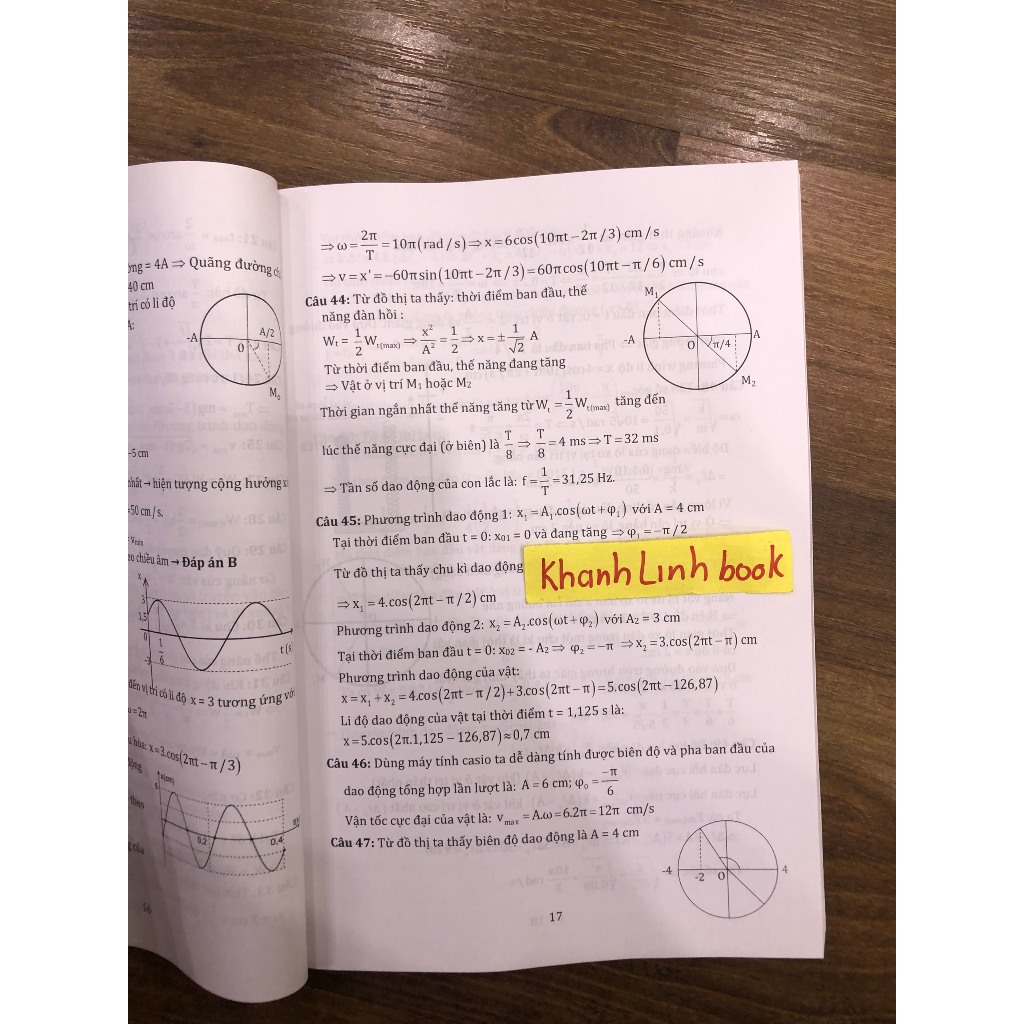 ờng = 4A ⇒ Quãng đường
40 cm
trí có li độ
A:
-A
A/2
O
M₂
-5 cm
nhất → hiện tượng cộng hưởng
=50 cm/s.
vmin
eo chiều âm → Đáp án B
x
3
1,5
0
1
6
-3
t(s)
đến vị trí có li độ x = 3 tương ứng với
=2π
hòa: x=3.cos(2πt − π/3)
0,2
0,4
theo
16
⇒ ω = 2π/T = 10π(rad/s) ⇒ x = 6cos(10πt − 2π/3) cm/s
⇒ v = x' = −60πsin(10πt − 2π/3) = 60πcos(10πt − π/6) cm/s
Câu 44: Từ đồ thị ta thấy: thời điểm ban đầu, thế
năng đàn hồi :
Wt = 1/2 Wt(max) ⇒ x²/A² = 1/2 ⇒ x = ± 1/√2 A
Từ thời điểm ban đầu, thế năng đang tăng
⇒ Vật ở vị trí M₁ hoặc M₂
M₁
-A
O
π/4
A
M₂
Thời gian ngắn nhất thế năng tăng từ Wt = 1/2 Wt(max) tăng đến
lúc thế năng cực đại (ở biên) là T/8 ⇒ T/8 = 4 ms ⇒ T = 32 ms
⇒ Tần số dao động của con lắc là: f = 1/T = 31,25 Hz.
Câu 45: Phương trình dao động 1: x₁ = A₁.cos(ωt+φ₁) với A = 4 cm
Tại thời điểm ban đầu t = 0: x₀₁ = 0 và đang tăng ⇒ φ₁ = −π/2
Từ đồ thị ta thấy chu kì dao động
Khanh Linh book
⇒ x₁ = 4.cos(2πt − π/2) cm
Phương trình dao động 2: x₂ = A₂.cos(ωt+φ₂) với A₂ = 3 cm
Tại thời điểm ban đầu t = 0: x₀₂ = - A₂ ⇒ φ₂ = −π ⇒ x₂ = 3.cos(2πt − π) cm
Phương trình dao động của vật:
x = x₁ + x₂ = 4.cos(2πt − π/2) + 3.cos(2πt − π) = 5.cos(2πt − 126,87)
Li độ dao động của vật tại thời điểm t = 1,125 s là:
x = 5.cos(2π.1,125 − 126,87) ≈ 0,7 cm
Câu 46: Dùng máy tính casio ta dễ dàng tính được biên độ và pha ban đầu của
dao động tổng hợp lần lượt là: A = 6 cm; φ₀ = −π/6
Vận tốc cực đại của vật là: vmax = A.ω = 6.2π = 12π cm/s
Câu 47: Từ đồ thị ta thấy biên độ dao động là A = 4 cm
-4
-2
O
4
17